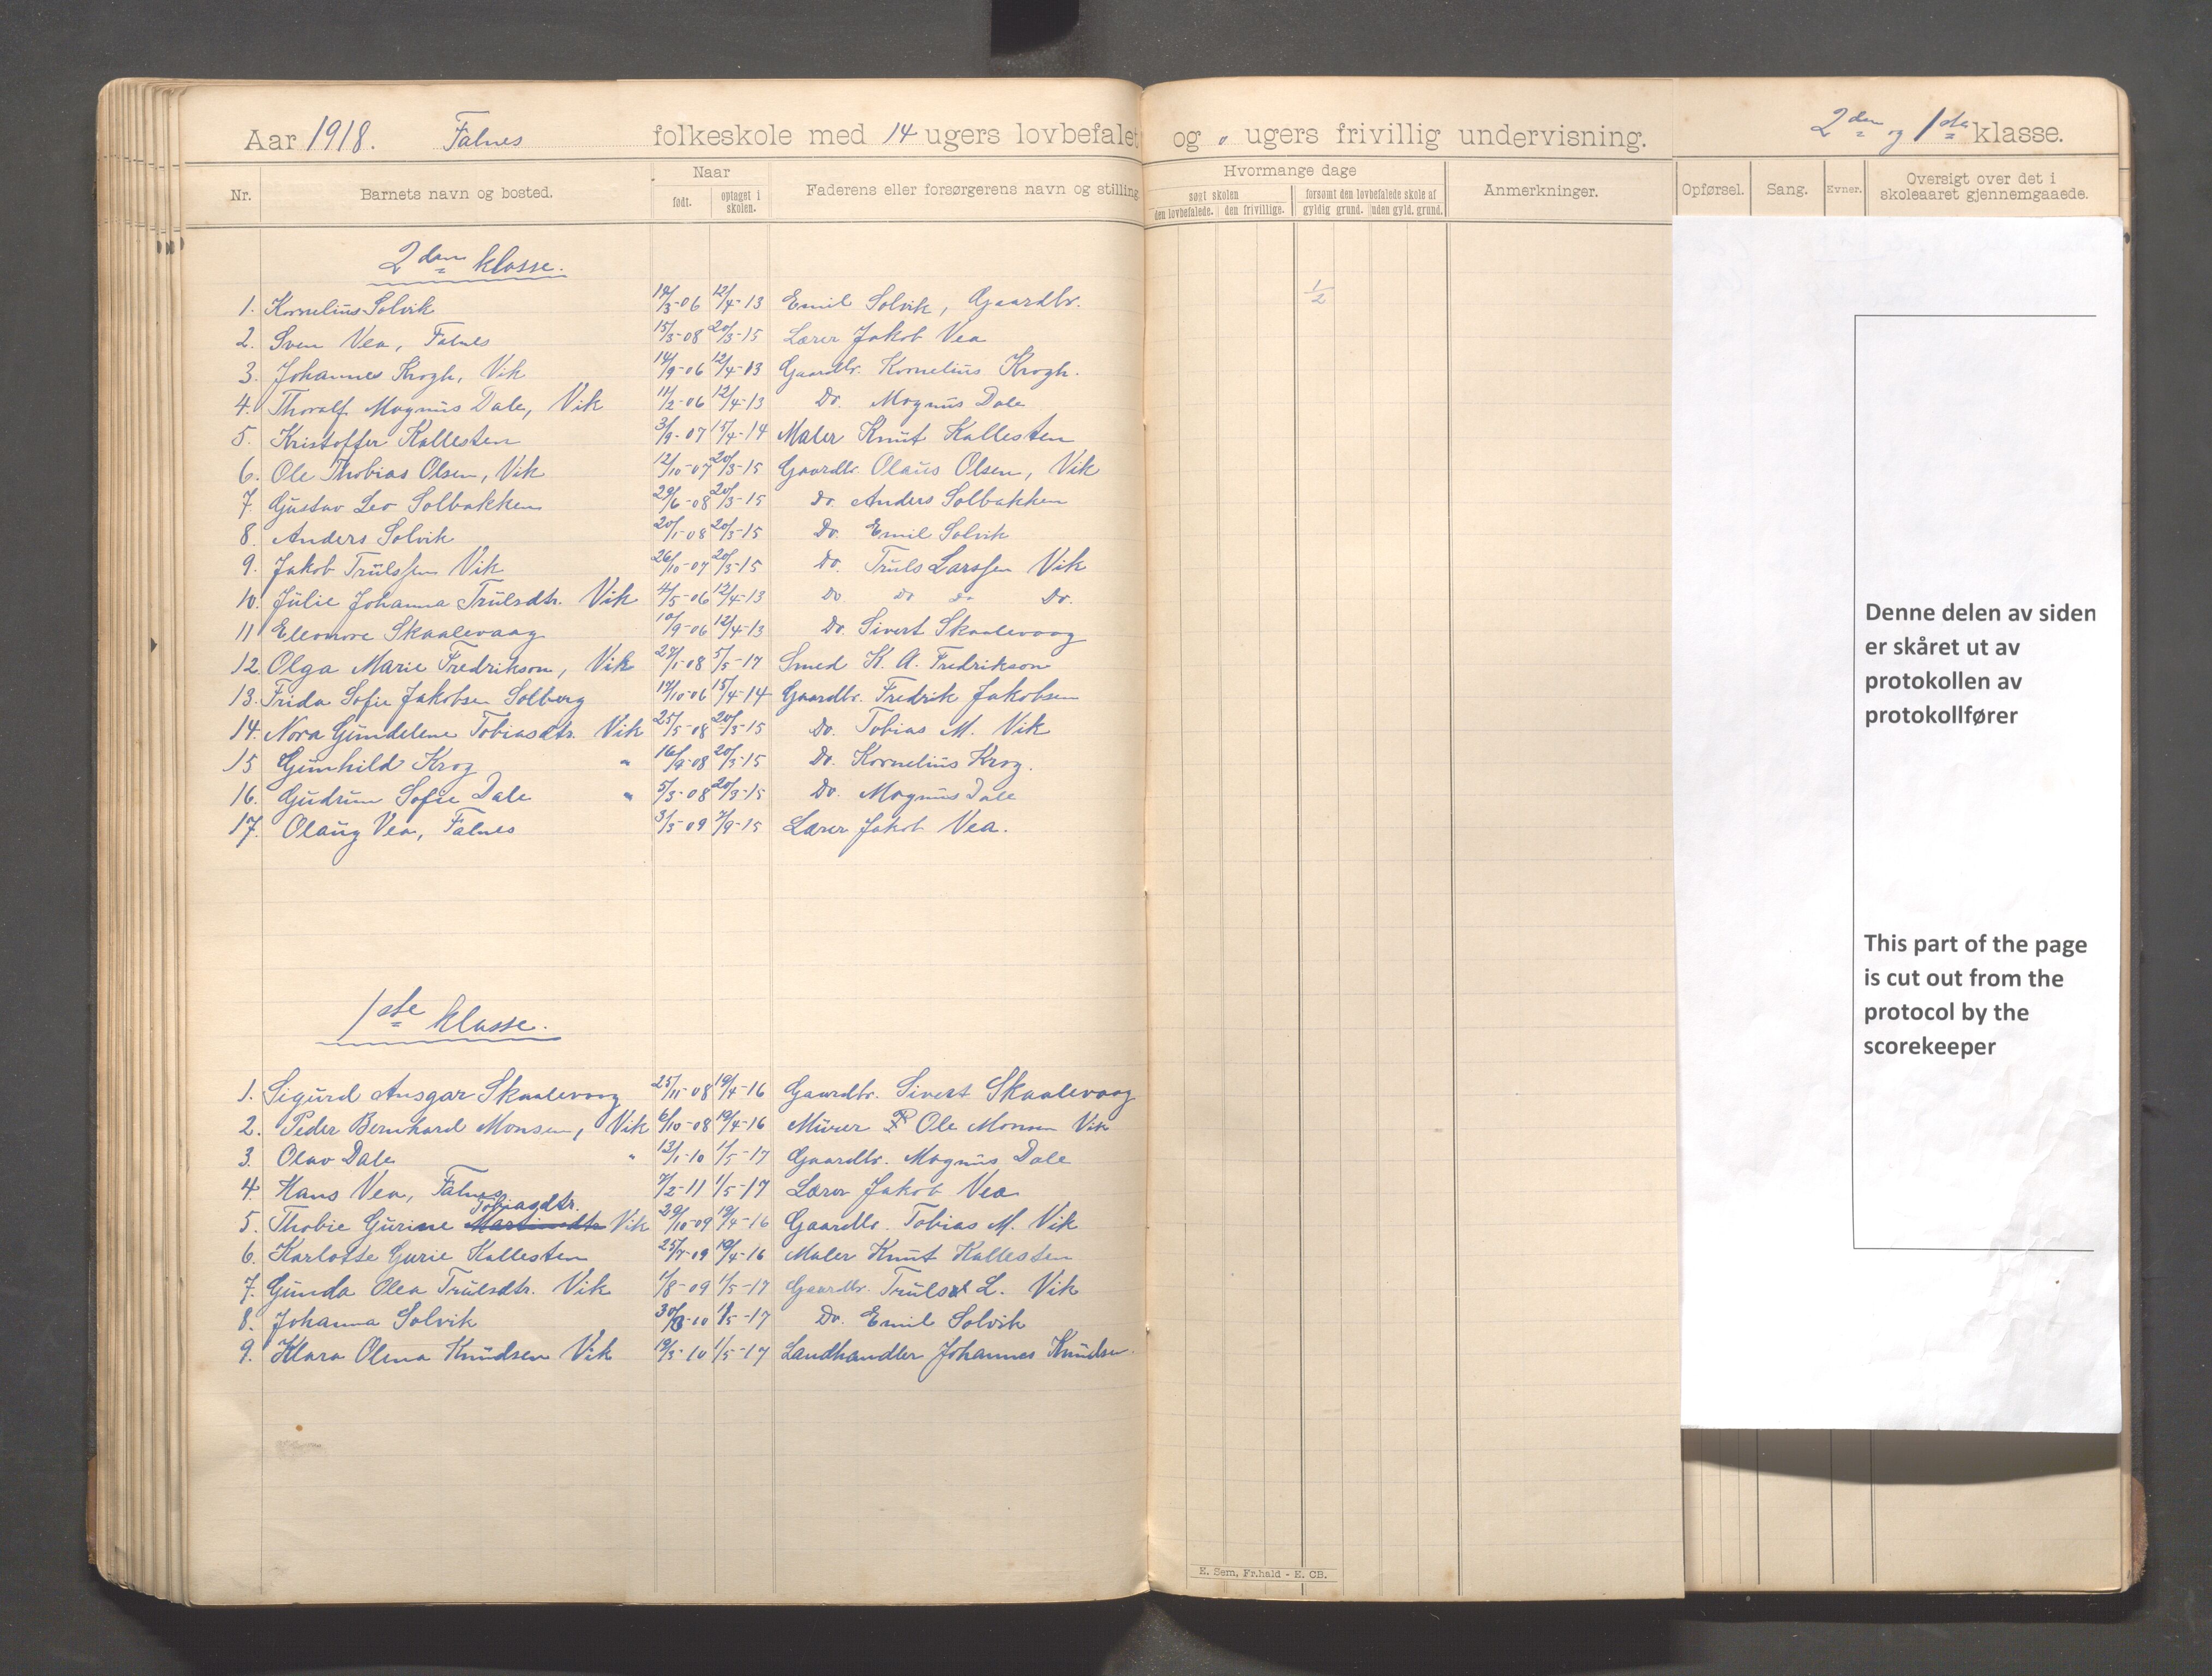 Aar 1918. Falnes folkeskole med 14 ugers lovbefalet og 0 ugers frivillig undervisning. 2den og 1ste klasse.
Nr. Barnets navn og bosted. Naar født. optaget i skolen. Faderens eller forsørgerens navn og stilling Hvormange dage søgt skolen den lovbefalede. den frivillige. forsømt den lovbefalede skole af gyldig grund. uden gyld. grund. Anmerkninger. Opførsel. Sang. Evner. Oversigt over det i skoleaaret gjennemgaaede.
2den klasse.
1. Kornelius Solvik 19/3-06 12/4-13 Emil Solvik, Gaardbr. 1/2
2. Sven Vea, Falnes 15/3-08 20/3-15 Lærer Jakob Vea
3. Johannes Krogh, Vik 14/9-06 12/4-13 Gaardbr. Kornelius Krogh.
4. Thoralf Magnus Dale, Vik 11/2-06 12/4-13 Do. Magnus Dale
5. Kristoffer Kallesten 3/9-07 15/4-14 Maler Knut Kallesten
6. Ole Thobias Olsen, Vik 12/10-07 20/3-15 Gaardbr. Olaus Olsen, Vik
7. Gustav Leo Solbakken 29/6-08 20/3-15 Do. Anders Solbakken
8. Anders Solvik 20/1-08 20/3-15 Do. Emil Solvik
9. Jakob Trulssen Vik 26/10-07 20/3-15 Do. Truls Larssen Vik
10. Julie Johanna Trulsdtr. Vik 4/5-06 12/4-13 Do Do Do Do.
11 Eleonore Skaalevaag 10/9-06 12/4-13 Do. Sivert Skaalevaag
12. Olga Marie Fredrikson, Vik 27/1-08 5/5-17 Smed K. A. Fredrikson
13. Frida Sofie Jakobsen Solberg 17/10-06 15/4-14 Gaardbr. Fredrik Jakobsen
14. Nora Gundelene Tobiasdtr. Vik 25/5-08 20/3-15 Do. Tobias M. Vik
15 Gunhild Krog " 16/9-08 20/3-15 Do. Kornelius Krog.
16. Gudrun Sofie Dale " 5/3-08 20/3-15 Do. Magnus Dale
17. Olaug Vea, Falnes 3/5-09 7/9-15 Lærer Jakob Vea.
1ste klasse.
1. Sigurd Ansgar Skaalevaag 25/11-08 19/4-16 Gaardbr. Sivert Skaalevaag
2. Peder Bernhard Monsen, Vik 6/10-08 19/4-16 Murer Ole Monsen Vik
3. Olav Dale " 12/1-10 1/5-17 Gaardbr. Magnus Dale
4. Hans Vea, Falnes 7/2-11 1/5-17 Lærer Jakob Vea
Tobiasdtr.
5. Thobie Gurine Martinsdtr Vik 29/10-09 19/4-16 Gaardbr. Tobias M. Vik
6. Karlotte Gurie Kallesten 25/7-09 19/4-16 Maler Knut Kallesten
7. Gunda Olea Trulsdtr. Vik 1/8-09 1/5-17 Gaardbr. Truls L. Vik
8. Johanna Solvik 1/5-17 Do. Emil Solvik
9. Klara Olena Knudsen Vik 19/3-10 1/5-17 Landhandler Johannes Knudsen.
E. Sem, Fr.hald - E. CB.
Denne delen av siden
er skåret ut av
protokollen av
protokollfører
This part of the page
is cut out from the
protocol by the
scorekeeper